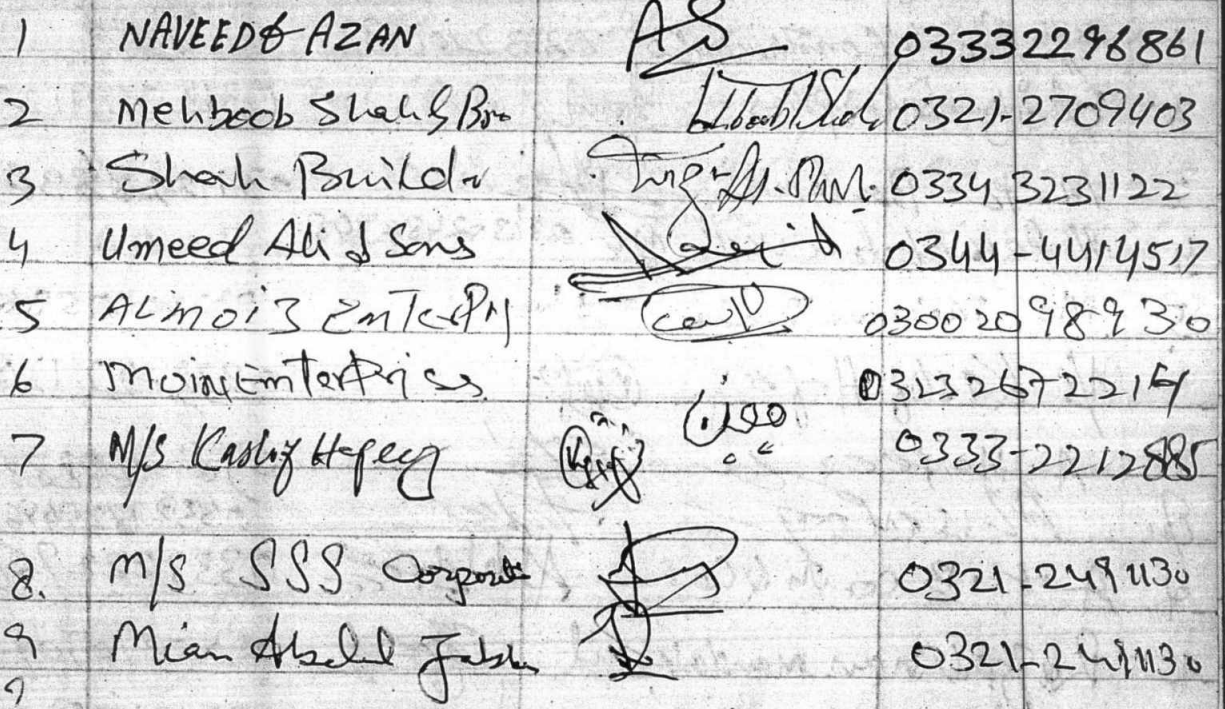 1 NAVEED & AZAN AS 03332296861
2 Mehboob Shah & Bro 0321-2709403
3 Shah Builde 0334 3231122
4 Umeed Ali & Sons 0344-4414517
5 ALmoiz EnTerPri 03002098930
6 moin EnterPrises
7 M/S Kashif 0333-2212885
8. M/S SSS Corporate 0321-2491130
9 Mian Abdul Jabbar 0321-2491130